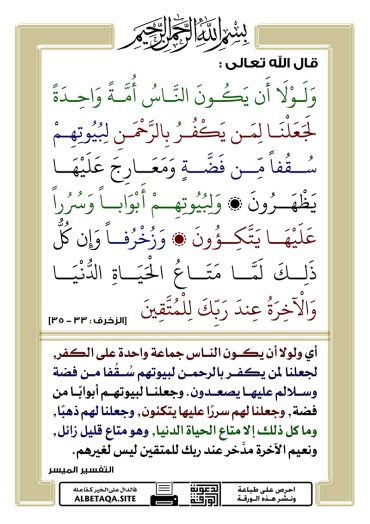 بِسْمِ اللَّهِ الرَّحْمَٰنِ الرَّحِيمِ
قال الله تعالى :
وَلَوْلَا أَن يَكُونَ النَّاسُ أُمَّةً وَاحِدَةً
لَجَعَلْنَا لِمَن يَكْفُرُ بِالرَّحْمَنِ لِبُيُوتِهِمْ
سُقُفاً مِّن فَضَّةٍ وَمَعَارِجَ عَلَيْهَا
يَظْهَرُونَ ۞ وَلِبُيُوتِهِمْ أَبْوَاباً وَسُرُراً
عَلَيْهَا يَتَّكِؤُونَ ۞ وَزُخْرُفاً وَإِن كُلُّ
ذَلِكَ لَمَّا مَتَاعُ الْحَيَاةِ الدُّنْيَا
وَالْآخِرَةُ عِندَ رَبِّكَ لِلْمُتَّقِينَ [الزخرف : ٣٣ - ٣٥]
أي ولولا أن يكون الناس جماعة واحدة على الكفر,
لجعلنا لمن يكفر بالرحمن لبيوتهم سُقُفا من فضة
وسلالم عليها يصعدون. وجعلنا لبيوتهم أبوابًا من
فضة, وجعلنا لهم سررًا عليها يتكئون, وجعلنا لهم ذهبًا,
وما كل ذلك إلا متاع الحياة الدنيا, وهو متاع قليل زائل,
ونعيم الآخرة مدَّخر عند ربك للمتقين ليس لغيرهم.
التفسير الميسر
احرص على طباعة
ونشر هذه الورقة
الدعوية
الورقة
فالدال على الخير كفاعله
ALBETAQA.SITE